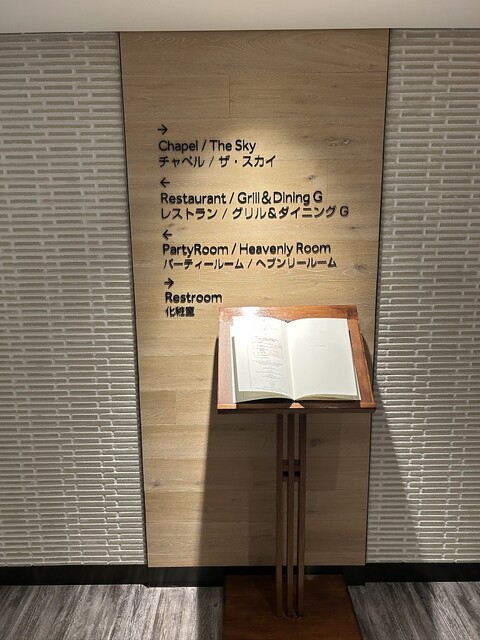 →
Chapel / The Sky
チャペル / ザ・スカイ
←
Restaurant / Grill & Dining G
レストラン / グリル&ダイニング G
←
PartyRoom / Heavenly Room
パーティールーム / ヘブンリールーム
→
Restroom
化粧室